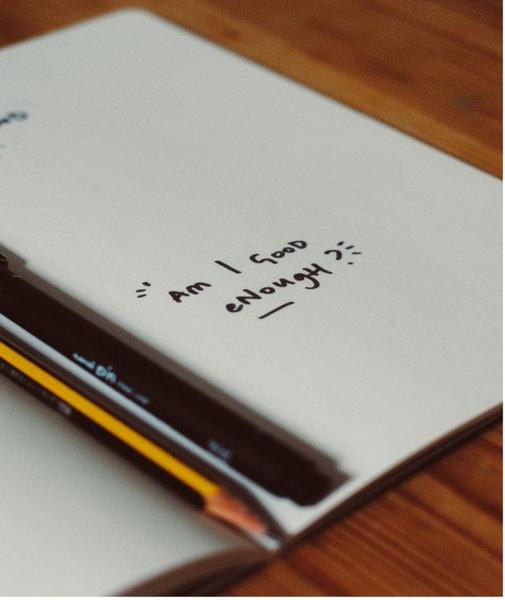 AM I GOOD
eNougH?